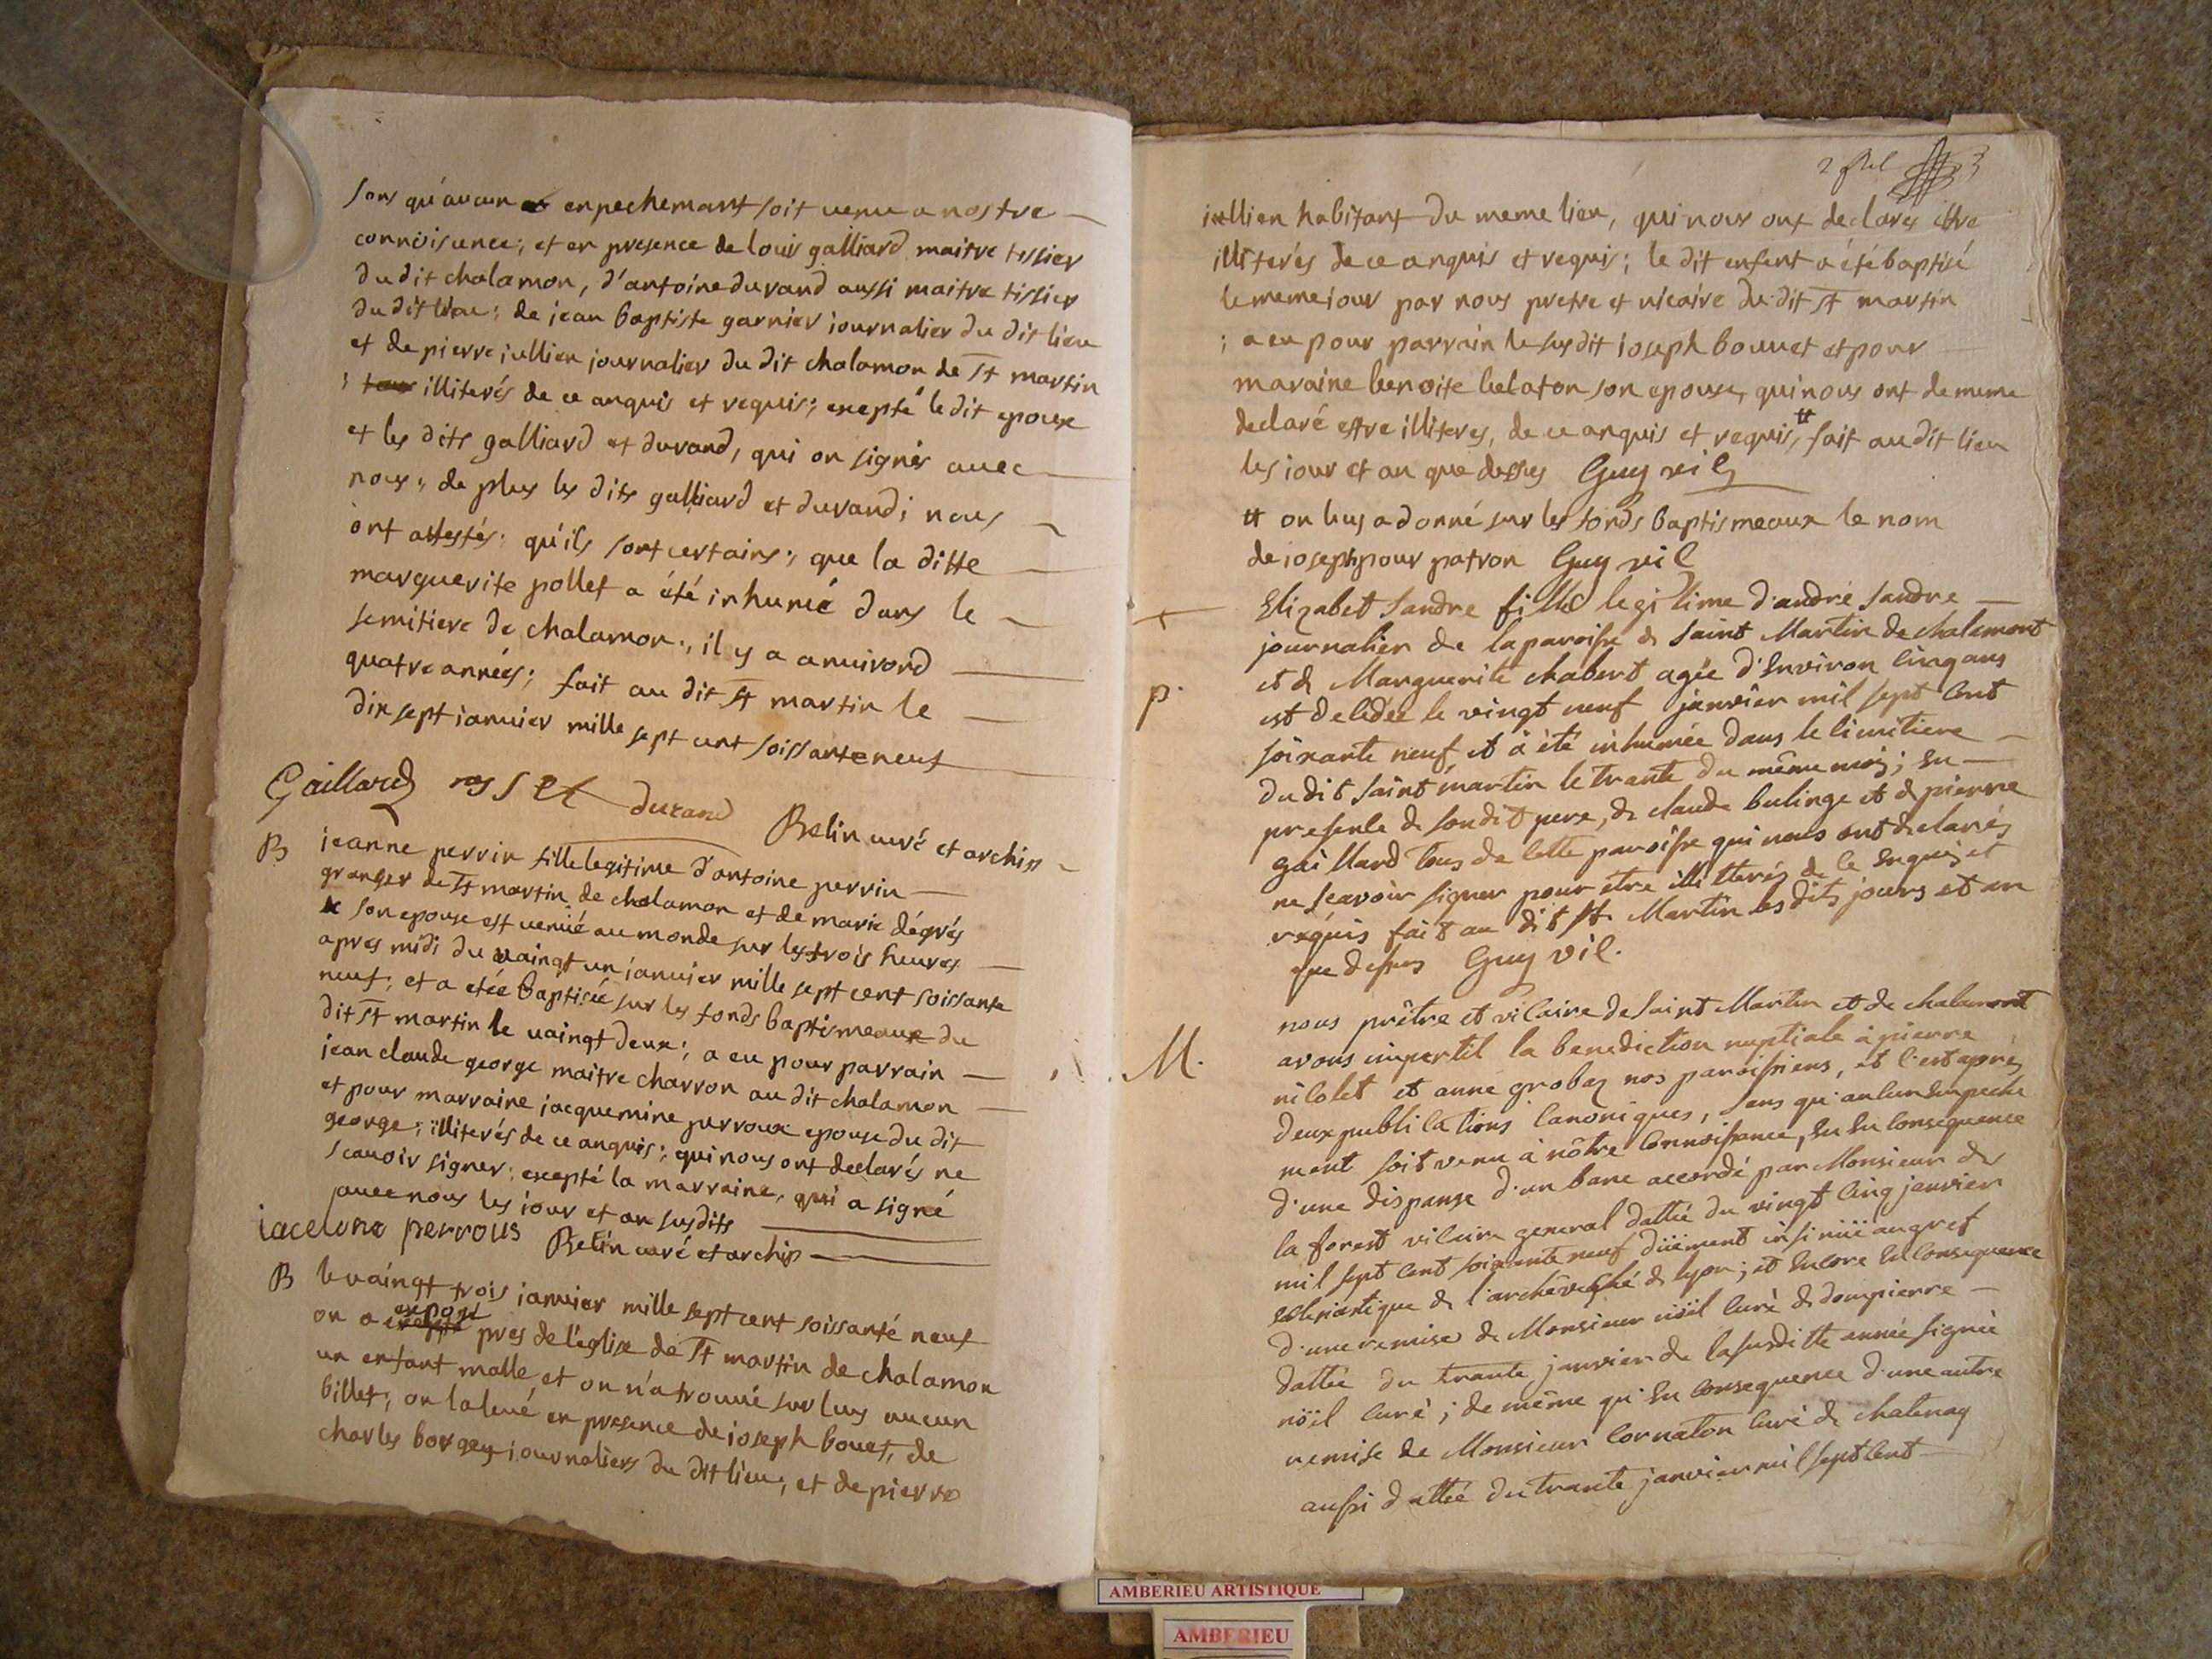 sans qu'aucun enpechemant soit venu a nostre
connoisence; et en presence de louis galliard maitre tissier
du dit chalamon, d'antoine durand aussi maitre tissier
du dit lieu; de jean baptiste garnier journalier du dit lieu
et de pierre jullien journalier du dit chalamon de St martin
; illiterés de ce anquis et requis; excepté le dit epoux
et les dits galliard et durand, qui on signés avec
nous; de plus les dits galliard et durand; nous
ont attestés; qu'ils sont certains; que la ditte
marguerite pollet a été inhumée dans le
semitiere de chalamon; il y a anvirond
quatre années; fait au dit St martin le
dix sept janvier mille sept cent soissante neuf
Gaillard rosset durand Belin curé et archip
B jeanne perrin fille legitime d'antoine perrin
granger de St martin de chalamon et de marie dégrés
son epouse est venüe au monde sur les trois heures
apres midi du vaingt un janvier mille sept cent soissante
neuf; et a etée baptisée sur les fonds baptismeaux du
dit St martin le vaingt deux; a eu pour parrain
jean claude george maitre charron au dit chalamon
et pour marraine jacquemine perroux epouse du dit
george; illiterés de ce anquis; qui nous ont declarés ne
scavoir signer; excepté la marraine, qui a signé
avec nous les jour et an susdits
iacelono perrous Belin curé et archip
B le vaingt trois janvier mille sept cent soissante neuf
on a exposé pres de l'eglise de St martin de chalamon
un enfant malle et on n'a trouvé sur luy aucun
billet; on la levé en presence de joseph bouet, de
charles borgey journaliers du dit lieu; et de pierre
2
jullien habitant du meme lieu, qui nous ont declarés estre
illiterés de ce anquis et requis; le dit enfant a été baptisé
le meme jour par nous pretre et vicaire du dit St martin
; a eu pour parrain le susdit joseph bouuet et pour
maraine benoite belaton son epouse, qui nous ont de meme
declaré estre illiteres, de ce anquis et requis, # fait au dit lieu
les jour et an que dessus Guy vic
# on luy a donné sur les fonds baptismeaux le nom
de joseph pour patron Guy vic
+ Elizabet Sandre fille legitime d'andré Sandre
journalier de la paroisse de Saint Martin de chalamont
et de Marguerite chabert agée d'Environ cinq ans
p. est decedée le vingt neuf janvier mil sept cent
soixante neuf et à été inhumée dans le cimitiere
du dit saint martin le trante du même mois; En
presence de son dit pere, de claude bulinge et de pierre
gaillard tous de cette paroisse qui nous ont declarés
ne sçavoir signer pour etre illitterés de ce Enquis et
requis fait au dit St Martin les dits jours et an
que dessus Guy vic.
nous prêtre et vicaire de Saint Martin et de chalamont
M. avons imparti la benediction nuptiale à pierre
nicolet et anne grobaz nos paroissiens, et c'est aprés
deux publications canoniques, sans qu'aucun Empeche
ment soit venu à nôtre connoissance, Eu En consequence
d'une dispanse d'un banc accordé par Monsieur de
la forest vicaire general dattée du vingt cinq janvier
mil sept cent soixante neuf düement insinuée au gref
eclesiastique de l'archêveché de lyon; et Encore En consequence
d'une remise de Monsieur noïel curé de dompierre
dattée du trante janvier de la susditte année signée
noïel curé; de même qu'En consequence d'une autre
remise de Monsieur Cornaton curé de chatenay
aussi dattée du trante janvier mil sept cent
AMBERIEU ARTISTIQUE
AMBERIEU